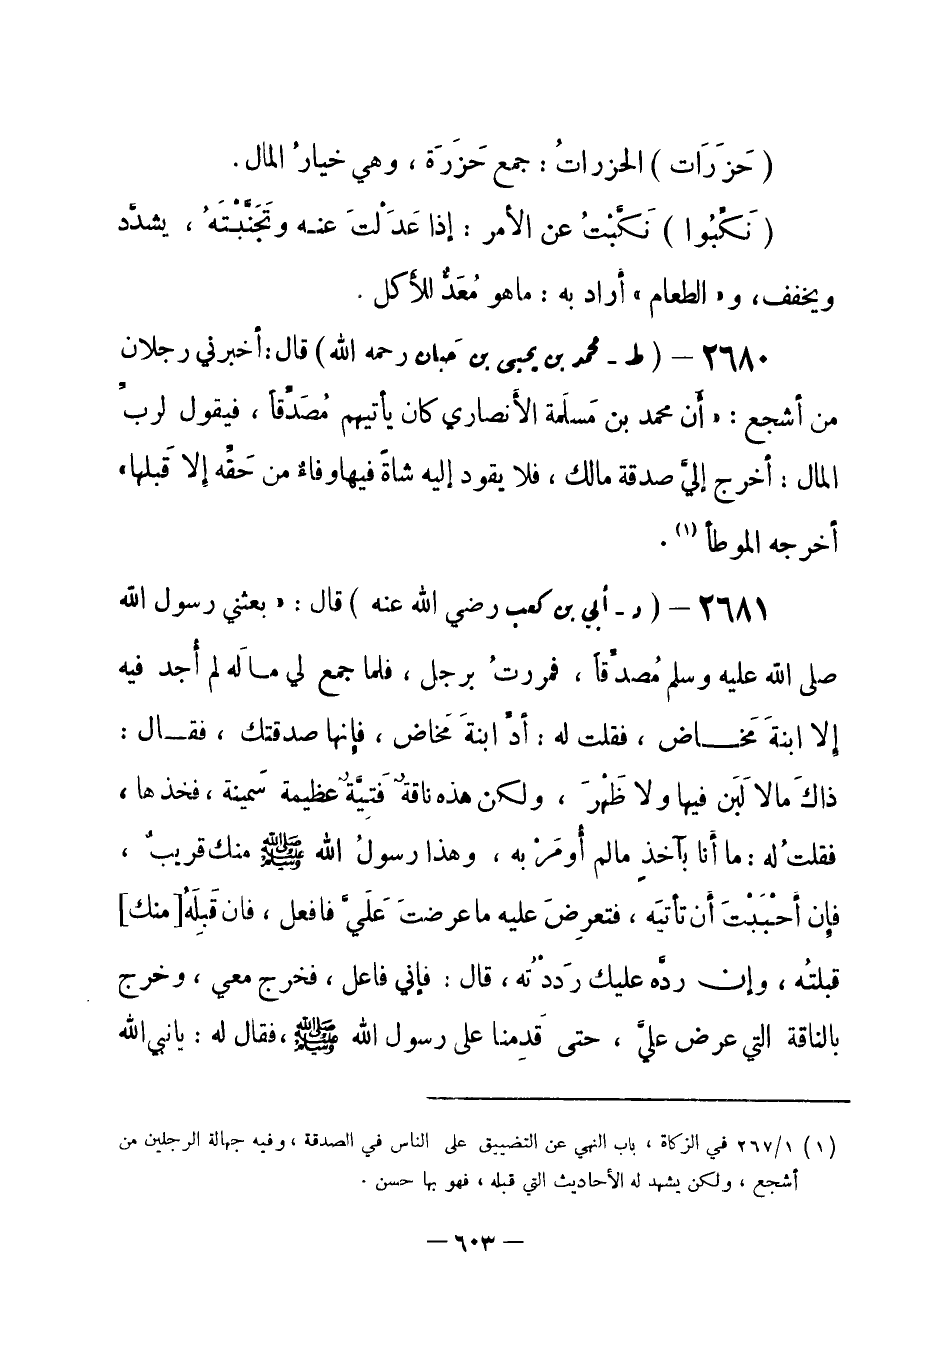 ( حَزَرَات ) الحزراتُ : جمع حَزَرَة ، وهي خيارُ المال .
( نَكِّبُوا ) نَكَّبْتُ عن الأمر : إذا عَدَلْتَ عنـه وتَجَنَّبْتَهُ ، يشدَّد
ويخفف، و« الطعام » أراد به : ماهو مُعَدٌّ للأكل .
٢٦٨٠ – ( ط ـ محمد بن يحيى بن حَبان رحمه الله ) قال : أخبرني رجلان
من أشجع : « أَن محمد بن مَسلَمة الأَنصاري كان يأتيهم مُصَدِّقاً ، فيقول لربِّ
المال : أخرج إليَّ صدقة مالك ، فلا يقود إليه شاةً فيهاوفاءٌ من حَقِّه إلا قَبلها»
أخرجه الموطأ (١) .
٢٦٨١ – ( د ـ أبي بن كعب رضي الله عنه ) قال : « بعثني رسول الله
صلى الله عليه وسلم مُصدِّقاً ، فمررتُ برجل ، فلما جمع لي مـالَه لم أَجد فيه
إلا ابنةَ مَخـــاض ، فقلت له : أدِّ ابنةَ مَخاض ، فإنها صدقتك ، فقـــال :
ذاكَ مالا لَبَن فيها ولا ظَهْرَ ، ولكن هذه ناقةٌ فَتِيَّةٌ عظيمة سَمينة ، فخذها ،
فقلتُ له : ما أَنا بآخذٍ مالم أُومَرْ به ، وهذا رسولُ الله ﷺ منك قريبٌ ،
فإن أَحْبَبْتَ أَن تأتيَه ، فتعرِضَ عليه ما عرضتَ عَلَيَّ فافعل ، فان قَبِلَهُ [منك]
قبلتُه ، وإن ردَّه عليك رَددْتُه ، قال : فإني فاعل ، فخرج معي ، وخرج
بالناقة التي عرض عليَّ ، حتى قَدِمنا على رسول الله ﷺ ، فقال له : يانبي الله
(١) ٢٦٧/١ في الزكاة ، باب النهي عن التضييق على الناس في الصدقة ، وفيه جهالة الرجلين من
أشجع ، ولكن يشهد له الأحاديث التي قبله ، فهو بها حسن .
– ٦٠٣ –